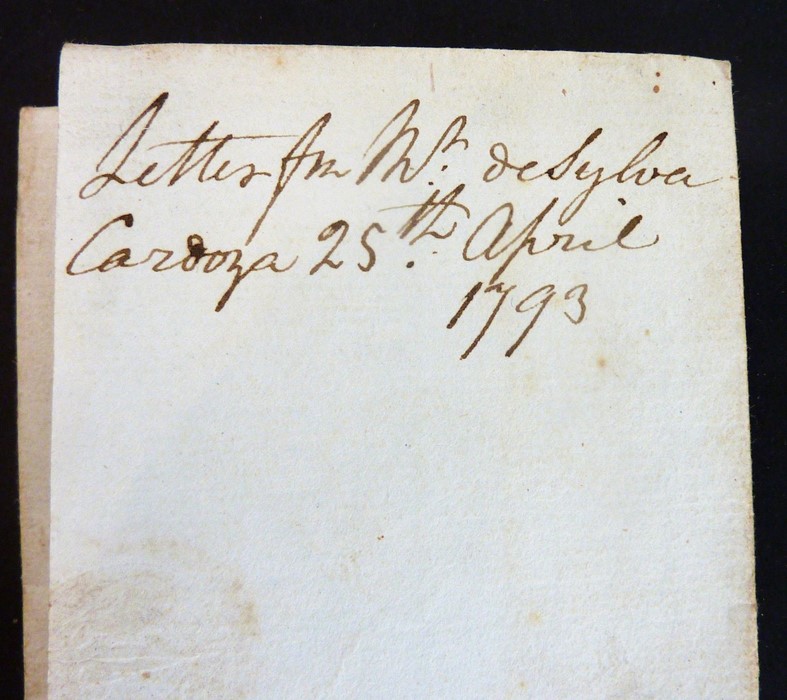 Letter fm Mr. deSylva
Cardoza 25th. April
1793